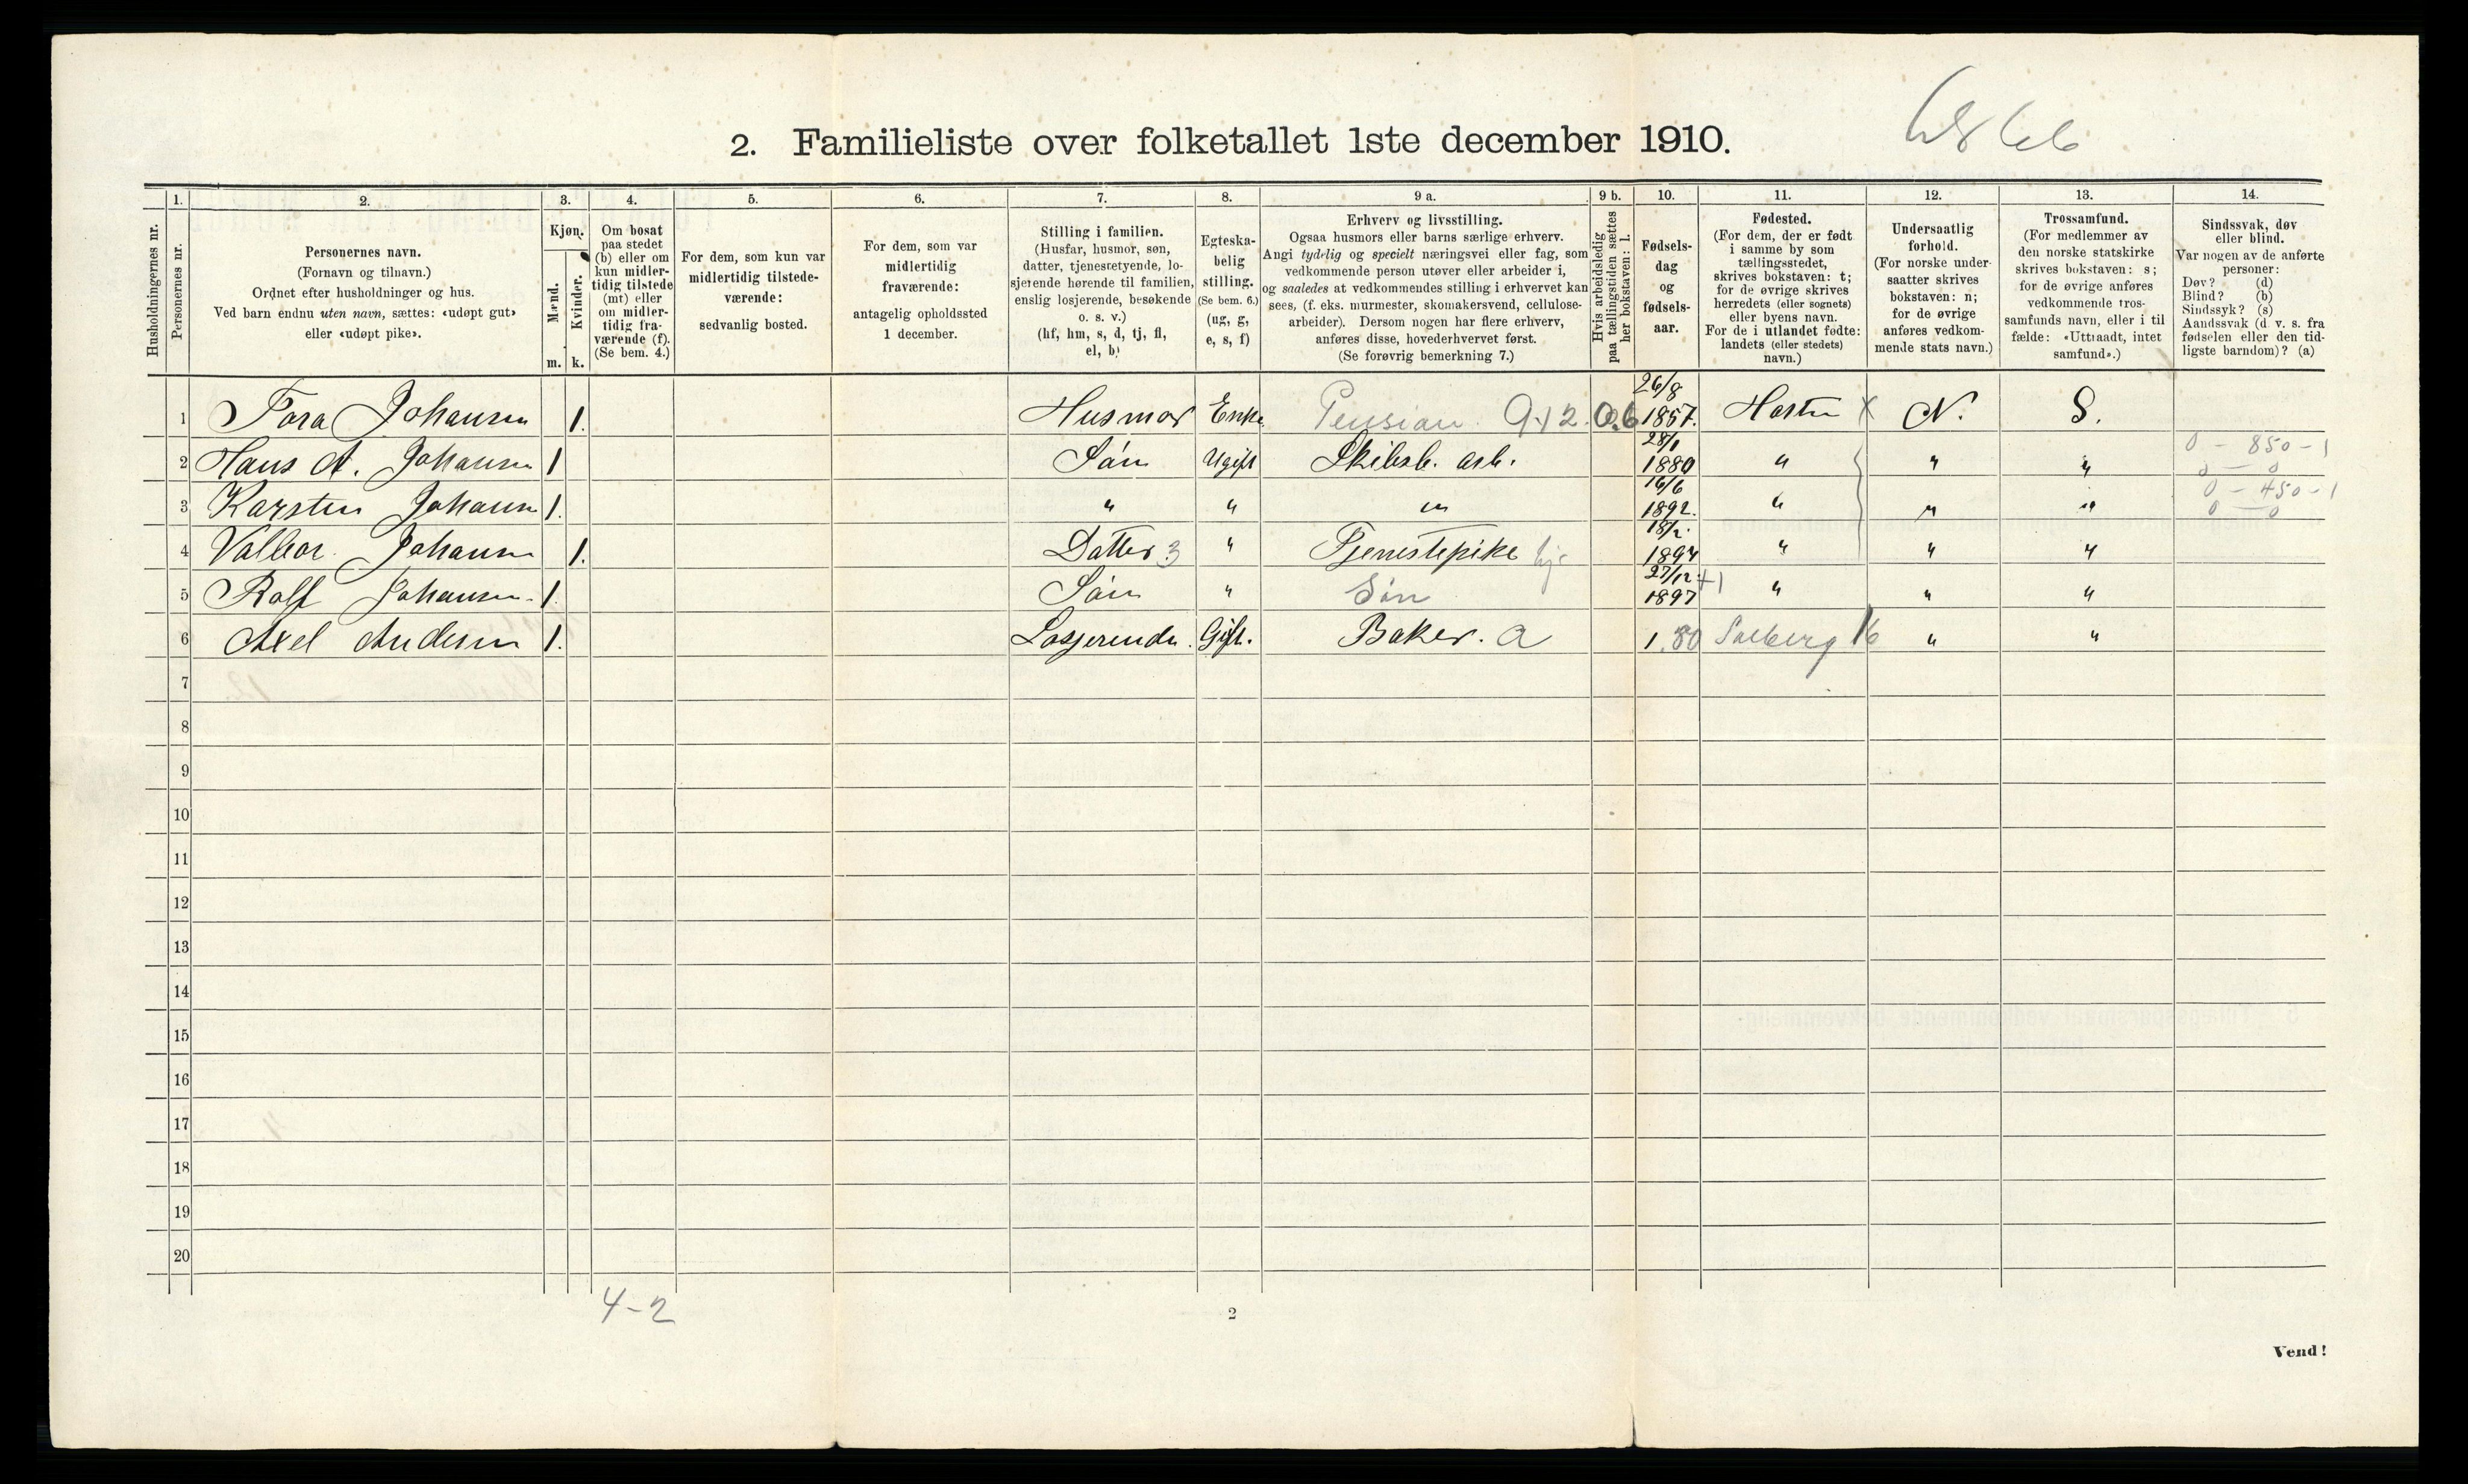 2. Familieliste over folketallet 1ste december 1910.
1. 2. 3. 4. 5. 6. 7. 8. 9 a. 9 b. 10. 11. 12. 13. 14.
Husholdningernes nr.
Personernes nr.
Personernes navn.
(Fornavn og tilnavn.)
Ordnet efter husholdninger og hus.
Ved barn endnu uten navn, sættes: «udøpt gut»
eller «udøpt pike».
Kjøn.
Mænd.
Kvinder.
m. k.
Om bosat
paa stedet
(b) eller om
kun midler-
tidig tilstede
(mt) eller
om midler-
tidig fra-
værende (f).
(Se bem. 4.)
For dem, som kun var
midlertidig tilstede-
værende:
sedvanlig bosted.
For dem, som var
midlertidig
fraværende:
antagelig opholdssted
1 december.
Stilling i familien.
(Husfar, husmor, søn,
datter, tjenestetyende, lo-
sjerende hørende til familien,
enslig losjerende, besøkende
o. s. v.)
(hf, hm, s, d, tj, fl,
el, b)
Egteska-
belig
stilling.
(Se bem. 6.)
(ug, g,
e, s, f)
Erhverv og livsstilling.
Ogsaa husmors eller barns særlige erhverv.
Angi tydelig og specielt næringsvei eller fag, som
vedkommende person utøver eller arbeider i,
og saaledes at vedkommendes stilling i erhvervet kan
sees, (f. eks. murmester, skomakersvend, cellulose-
arbeider). Dersom nogen har flere erhverv,
anføres disse, hovederhvervet først.
(Se forøvrig bemerkning 7.)
Hvis arbeidsledig
paa tællingstiden sættes
her bokstaven: l.
Fødsels-
dag
og
fødsels-
aar.
Fødested.
(For dem, der er født
i samme by som
tællingsstedet,
skrives bokstaven: t;
for de øvrige skrives
herredets (eller sognets)
eller byens navn.
For de i utlandet fødte:
landets (eller stedets)
navn.)
Undersaatlig
forhold.
(For norske under-
saatter skrives
bokstaven: n;
for de øvrige
anføres vedkom-
mende stats navn.)
Trossamfund.
(For medlemmer av
den norske statskirke
skrives bokstaven: s;
for de øvrige anføres
vedkommende tros-
samfunds navn, eller i til
fælde: «Uttraadt, intet
samfund».)
Sindssvak, døv
eller blind.
Var nogen av de anførte
personer:
Døv? (d)
Blind? (b)
Sindssyk? (s)
Aandssvak (d. v. s. fra
fødselen eller den tid-
ligste barndom)? (a)
1 Tora Johansen 1. Husmor Enke Pension 9.12. 0.6 26/8 1857. Horten X N. S.
2 Hans A. Johansen 1 Søn Ugift Skibsb. arb. 28/1 1880 " " " 0 - 850 - 1 0 - 0
3 Karsten Johansen 1. " " " 16/6 1892. " " " 0 - 450 - 1 0 - 0
4 Valbor. Johansen 1. Datter 3 " Tjenestepike 18/2. 1894 " " "
5 Rolf Johansen. 1. Søn " Søn 27/12 1897 +1 " " "
6 Axel Andersen 1. Losjerende. Gift. Baker. a 1.80 Solberg 16 " "
7
8
9
10
11
12
13
14
15
16
17
18
19
20
4-2
2
Vend!